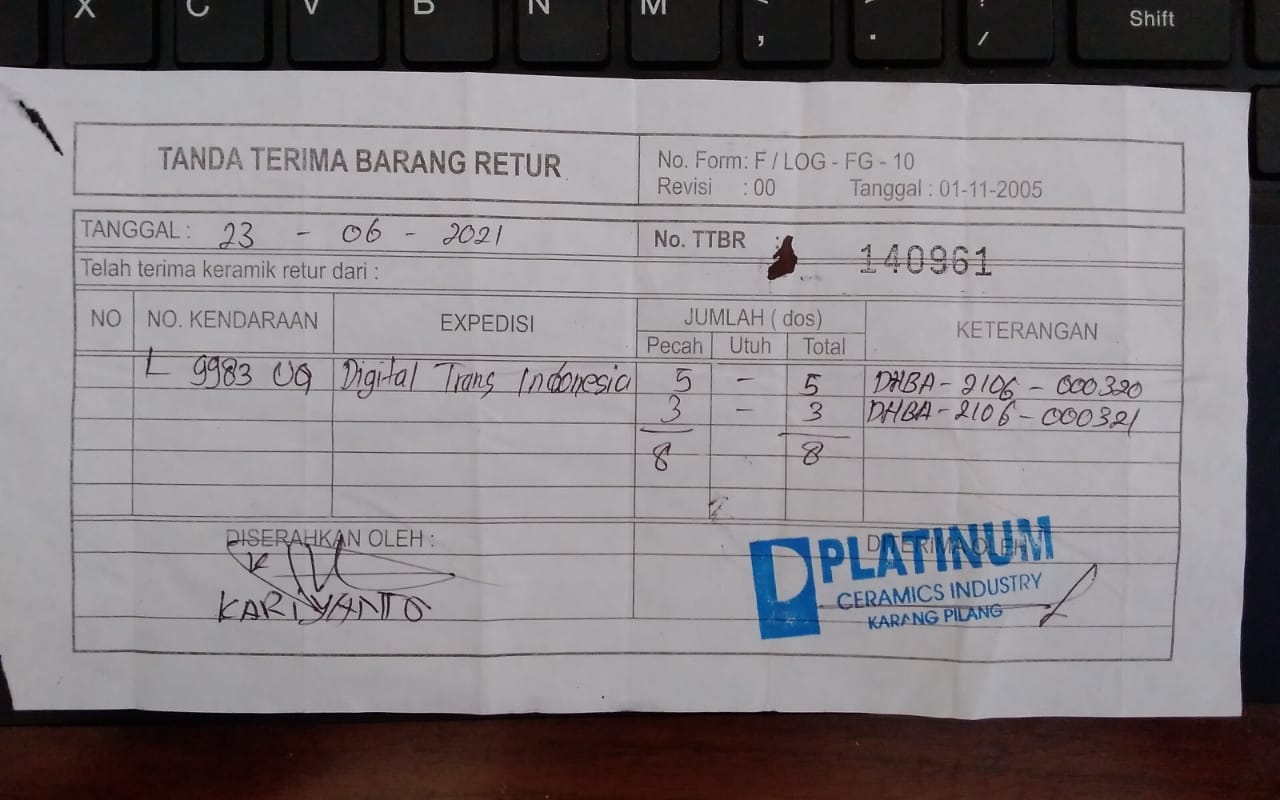 X C V B N M , . / Shift
TANDA TERIMA BARANG RETUR
No. Form: F / LOG - FG - 10
Revisi : 00 Tanggal : 01-11-2005
TANGGAL : 23 - 06 - 2021
No. TTBR : 140961
Telah terima keramik retur dari :
NO NO. KENDARAAN EXPEDISI JUMLAH ( dos) KETERANGAN
Pecah Utuh Total
L 9983 UQ Digital Trans Indonesia 5 - 5 DHBA - 2106 - 000320
3 - 3 DHBA - 2106 - 000321
8 8
DISERAHKAN OLEH : DITERIMA OLEH :
KARIYANTO
PLATINUM
CERAMICS INDUSTRY
KARANG PILANG